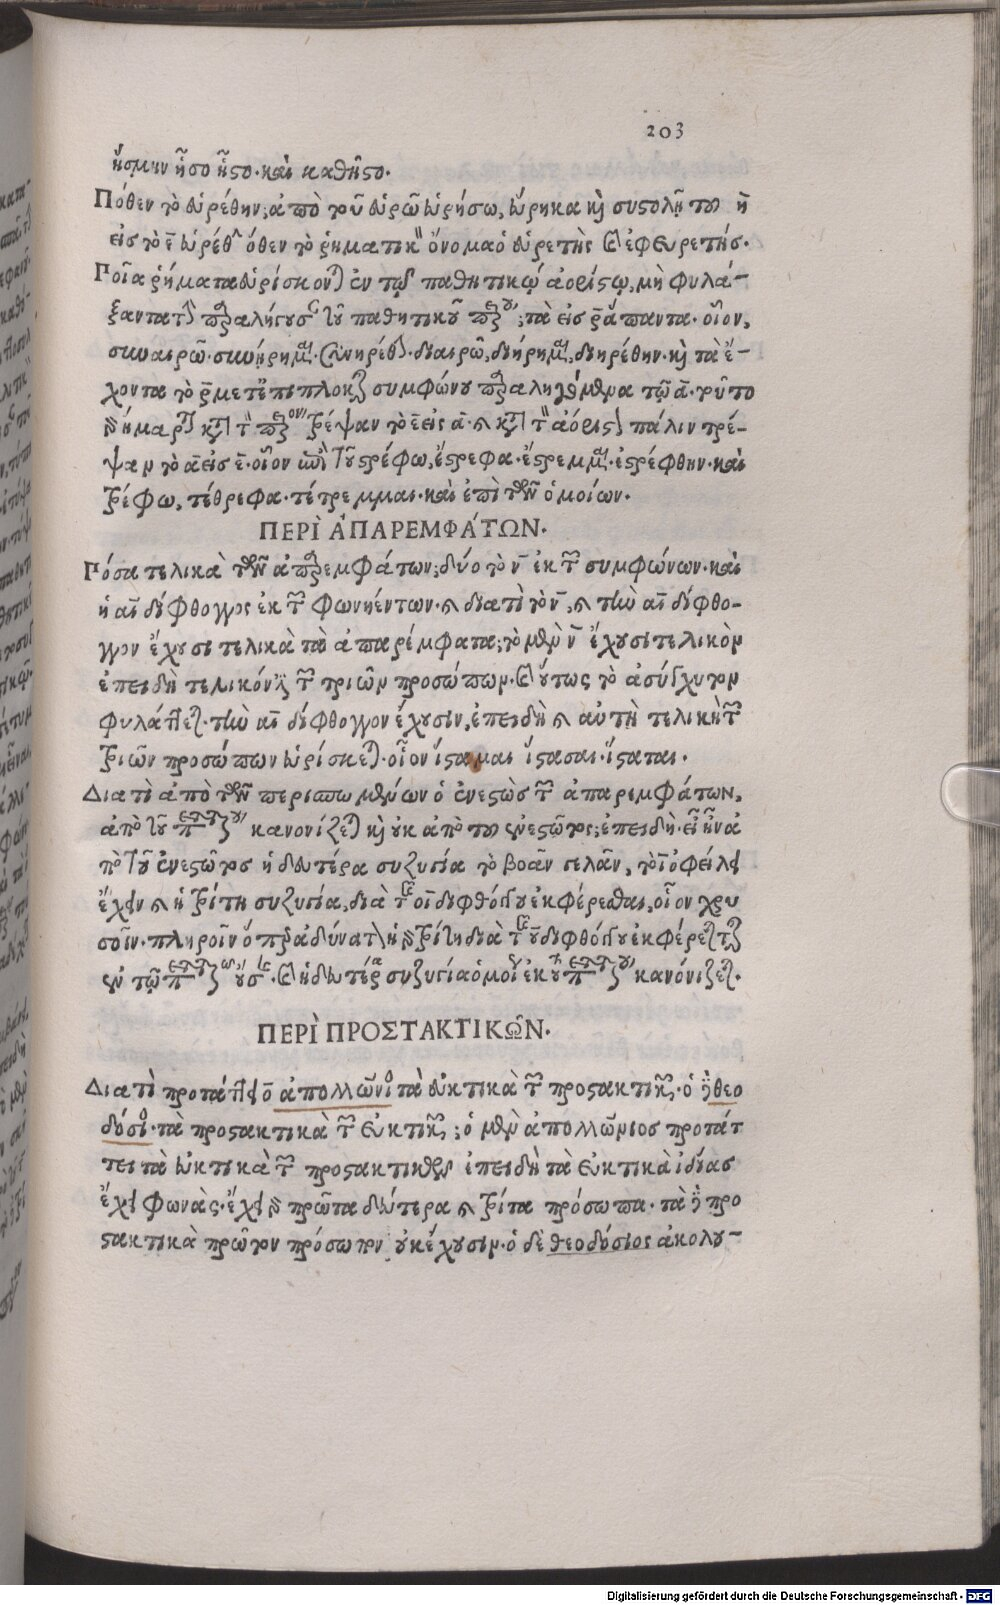 203
ἥσμην ἧσο ἧστο· καὶ καθῆστο.
Πόθεν τὸ εὑρέθην; ἀπὸ τοῦ εὑρῶ εὑρήσω, εὕρηκα καὶ συστολῇ τοῦ η
εἰς τὸ ε εὑρέθην ὅθεν τὸ ῥηματικὸν ὄνομα ὁ εὑρετὴς καὶ ἐφευρετής.
Ποῖα ῥήματα εὑρίσκονται ἐν τῷ παθητικῷ ἀορίστῳ, μὴ φυλά-
ξαντα παραλήγουσαν τοῦ παθητικοῦ παρακειμένου; τὰ εἰς ρα ἅπαντα. οἷον,
συναιρῶ· συνῄρημαι· συνῃρέθην· διαιρῶ, διῄρημαι, διῃρέθην. καὶ τὰ ἔ-
χοντα τὸ ρ μετ' ἐπιπλοκῆς συμφώνου παραληγόμενα τῷ α. τοῦτο
παρακείμενον τρέψαν τὸ ε εἰς α· καὶ κατὰ τὸν ἀόριστον πάλιν τρέ-
ψαν τὸ α εἰς ε. οἷον ἐπὶ τοῦ στρέφω, ἔστρεφα· ἔστρεμμαι· ἐστρέφθην. καὶ
τρέφω, τέθρεφα· τέτρεμμαι. καὶ ἐπὶ τῶν ὁμοίων.
ΠΕΡΙ ἈΠΑΡΕΜΦΆΤΩΝ.
Πόσα τελικὰ τῶν ἀπαρεμφάτων; δύο τὸ ν ἐκ τῶν συμφώνων. καὶ
ἡ αι δίφθογγος ἐκ τῶν φωνηέντων. καὶ διατὶ τὸ ν, καὶ τὴν αι δίφθο-
γγον ἔχουσι τελικὰ τὰ ἀπαρέμφατα; τὸ μὲν ν ἔχουσι τελικὸν
ἐπειδὴ τελικόν ἐστι τῶν τριῶν προσώπων. καὶ οὕτως τὸ ἀσύγχυτον
φυλάττει. τὴν αι δίφθογγον ἔχουσιν, ἐπειδὴ καὶ αὐτὴ τελικὴ τῶν
τριῶν προσώπων εὑρίσκεται. οἷον ἵσταμαι ἵστασαι. ἵσταται.
Διατὶ ἀπὸ τῶν περισπωμένων ὁ ἐνεστὼς τῶν ἀπαρεμφάτων,
ἀπὸ τοῦ κανονίζεται καὶ οὐκ ἀπὸ τοῦ ἐνεστῶτος; ἐπειδὴ εἰ ἦν ἀ
πὸ τοῦ ἐνεστῶτος ἡ δευτέρα συζυγία τὸ βοᾶν γελᾶν, ὤφειλεν
ἔχειν καὶ ἡ τρίτη συζυγία, διὰ τῆς οι διφθόγγου ἐκφέρεσθαι, οἷον χρυ
σοῖν. πληροῖν ὅπερ ἀδύνατον ἡ γὰρ τρίτη διὰ τῆς ου διφθόγγου ἐκφέρεται
καὶ ἡ δευτέρα συζυγία ὁμοίως ἐκ τοῦ κανονίζεται.
ΠΕΡῚ ΠΡΟΣΤΑΚΤΙΚΩ͂Ν.
Διατὶ προτάττει ὁ ἀπολλώνιος τὰ εὐκτικὰ τῶν προστακτικῶν. ὁ δὲ θεο
δόσιος. τὰ προστακτικὰ τῶν εὐκτικῶν; ὁ μὲν ἀπολλώνιος προτάτ
τει τὰ εὐκτικὰ τῶν προστακτικῶν ἐπειδὴ τὰ εὐκτικὰ ἰδίας
ἔχει φωνὰς. ἔχει γὰρ πρῶτα δεύτερα καὶ τρίτα πρόσωπα. τὰ δὲ προ
στακτικὰ πρῶτον πρόσωπον οὐκ ἔχουσιν. ὁ δὲ θεοδόσιος ἀκολου-
Digitalisierung gefördert durch die Deutsche Forschungsgemeinschaft · DFG